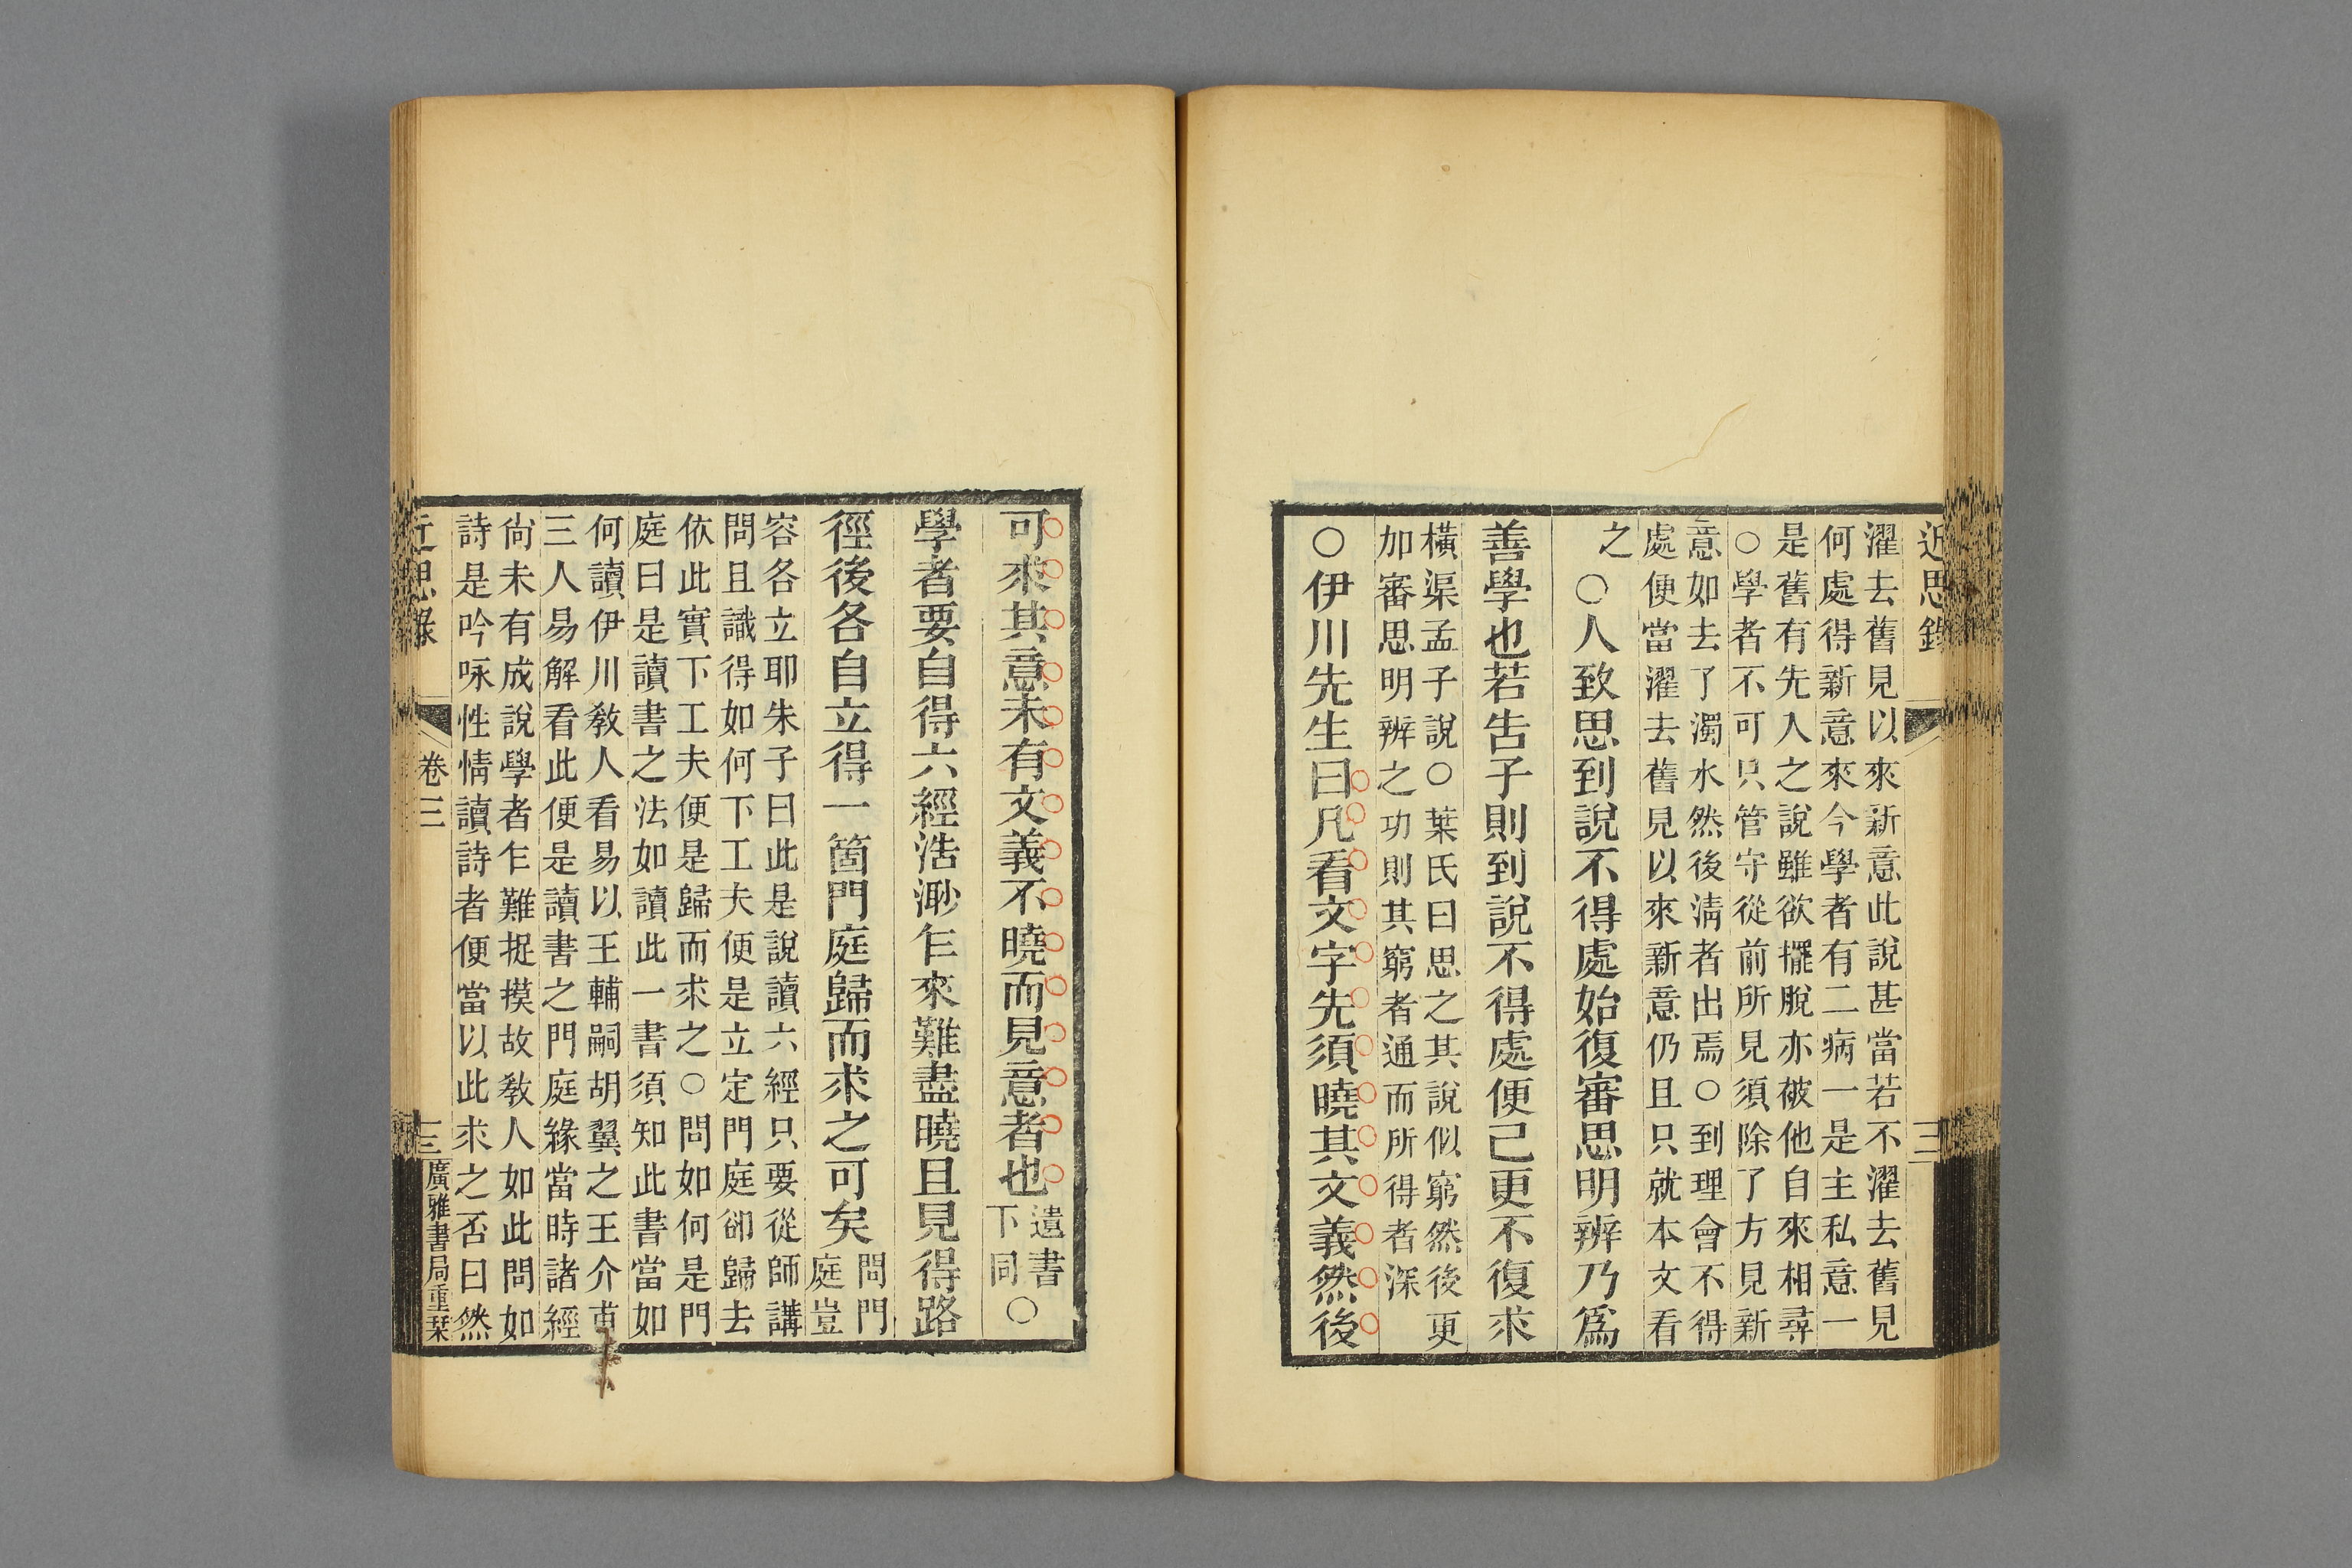 近思錄
三
濯去舊見以來新意此說甚當若不濯去舊見
何處得新意來今學者有二病一是主私意一
是舊有先入之說雖欲擺脫亦被他自來相尋
○學者不可只管守從前所見須除了方見新
意如去了濁水然後清者出焉○到理會不得
處便當濯去舊見以來新意仍且只就本文看
之○人致思到說不得處始復審思明辨乃爲
善學也若告子則到說不得處便己更不復求
橫渠孟子說○葉氏曰思之其說似窮然後更
加審思明辨之功則其窮者通而所得者深
○伊川先生曰凡看文字先須曉其文義然後
可求其意未有文義不曉而見意者也遺書
下同○
學者要自得六經浩渺乍來難盡曉且見得路
徑後各自立得一箇門庭歸而求之可矣問門
庭豈
容各立耶朱子曰此是說讀六經只要從師講
問且識得如何下工夫便是立定門庭卻歸去
依此實下工夫便是歸而求之○問如何是門
庭曰是讀書之法如讀此一書須知此書當如
何讀伊川敎人看易以王輔嗣胡翼之王介甫
三人易解看此便是讀書之門庭緣當時諸經
尙未有成說學者乍難捉摸故敎人如此問如
詩是吟咏性情讀詩者便當以此求之否曰然
近思錄
卷三
三
廣雅書局重栞